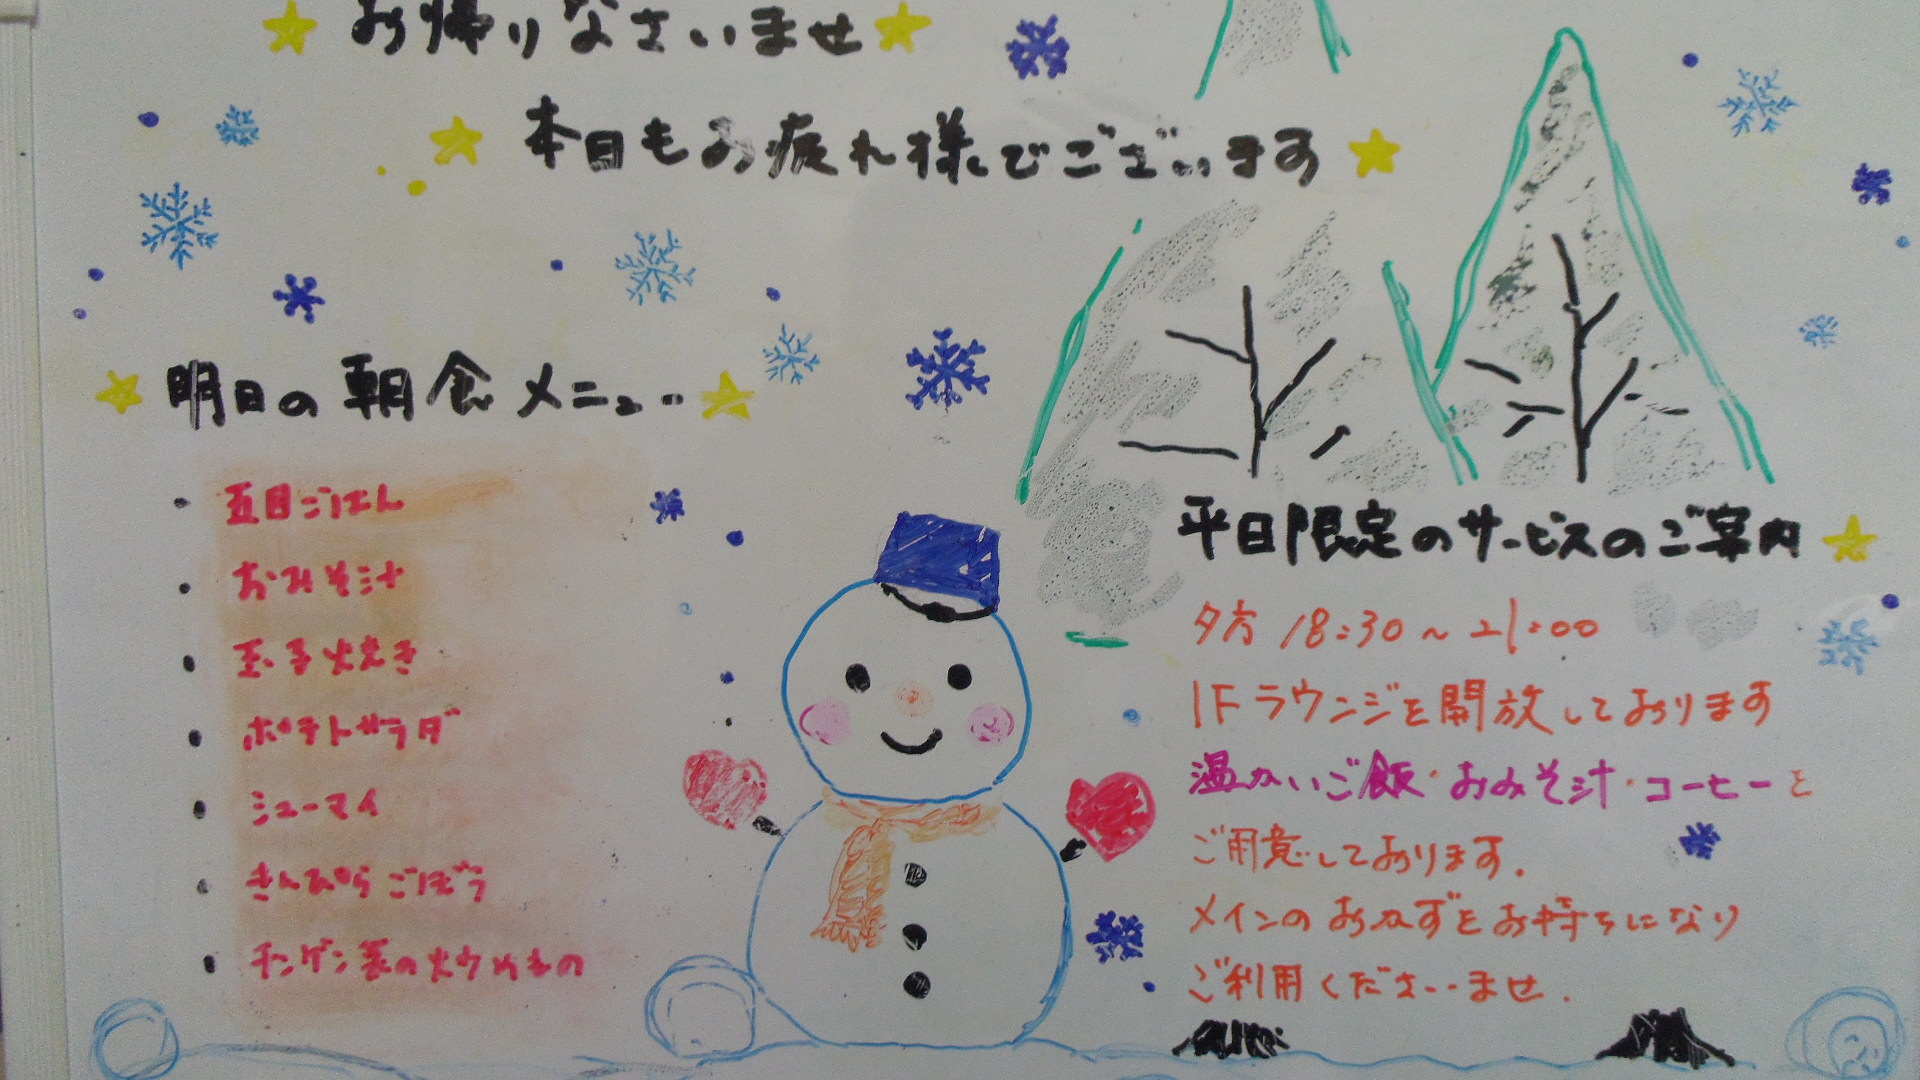 お帰りなさいませ
本日もお疲れ様でございます
明日の朝食メニュー
・五目ごはん
・おみそ汁
・玉子焼き
・ポテトサラダ
・シューマイ
・きんぴらごぼう
・チンゲン菜の炒めもの
平日限定のサービスのご案内
夕方 18:30～21:00
1Fラウンジを開放しております
温かいご飯・おみそ汁・コーヒーを
ご用意しております。
メインのおかずをお持ちになり
ご利用くださいませ.